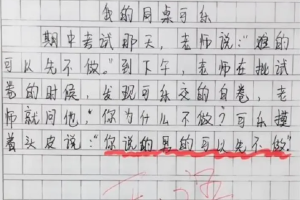 我的同桌可乐
期中考试那天，老师说：“难的
可以先不做。”到下午，老师在批试
卷的时候，发现可乐交的白卷，老
师就问他，“你为什么不做？”可乐摸
着头皮说：“你说的男的可以先不做”